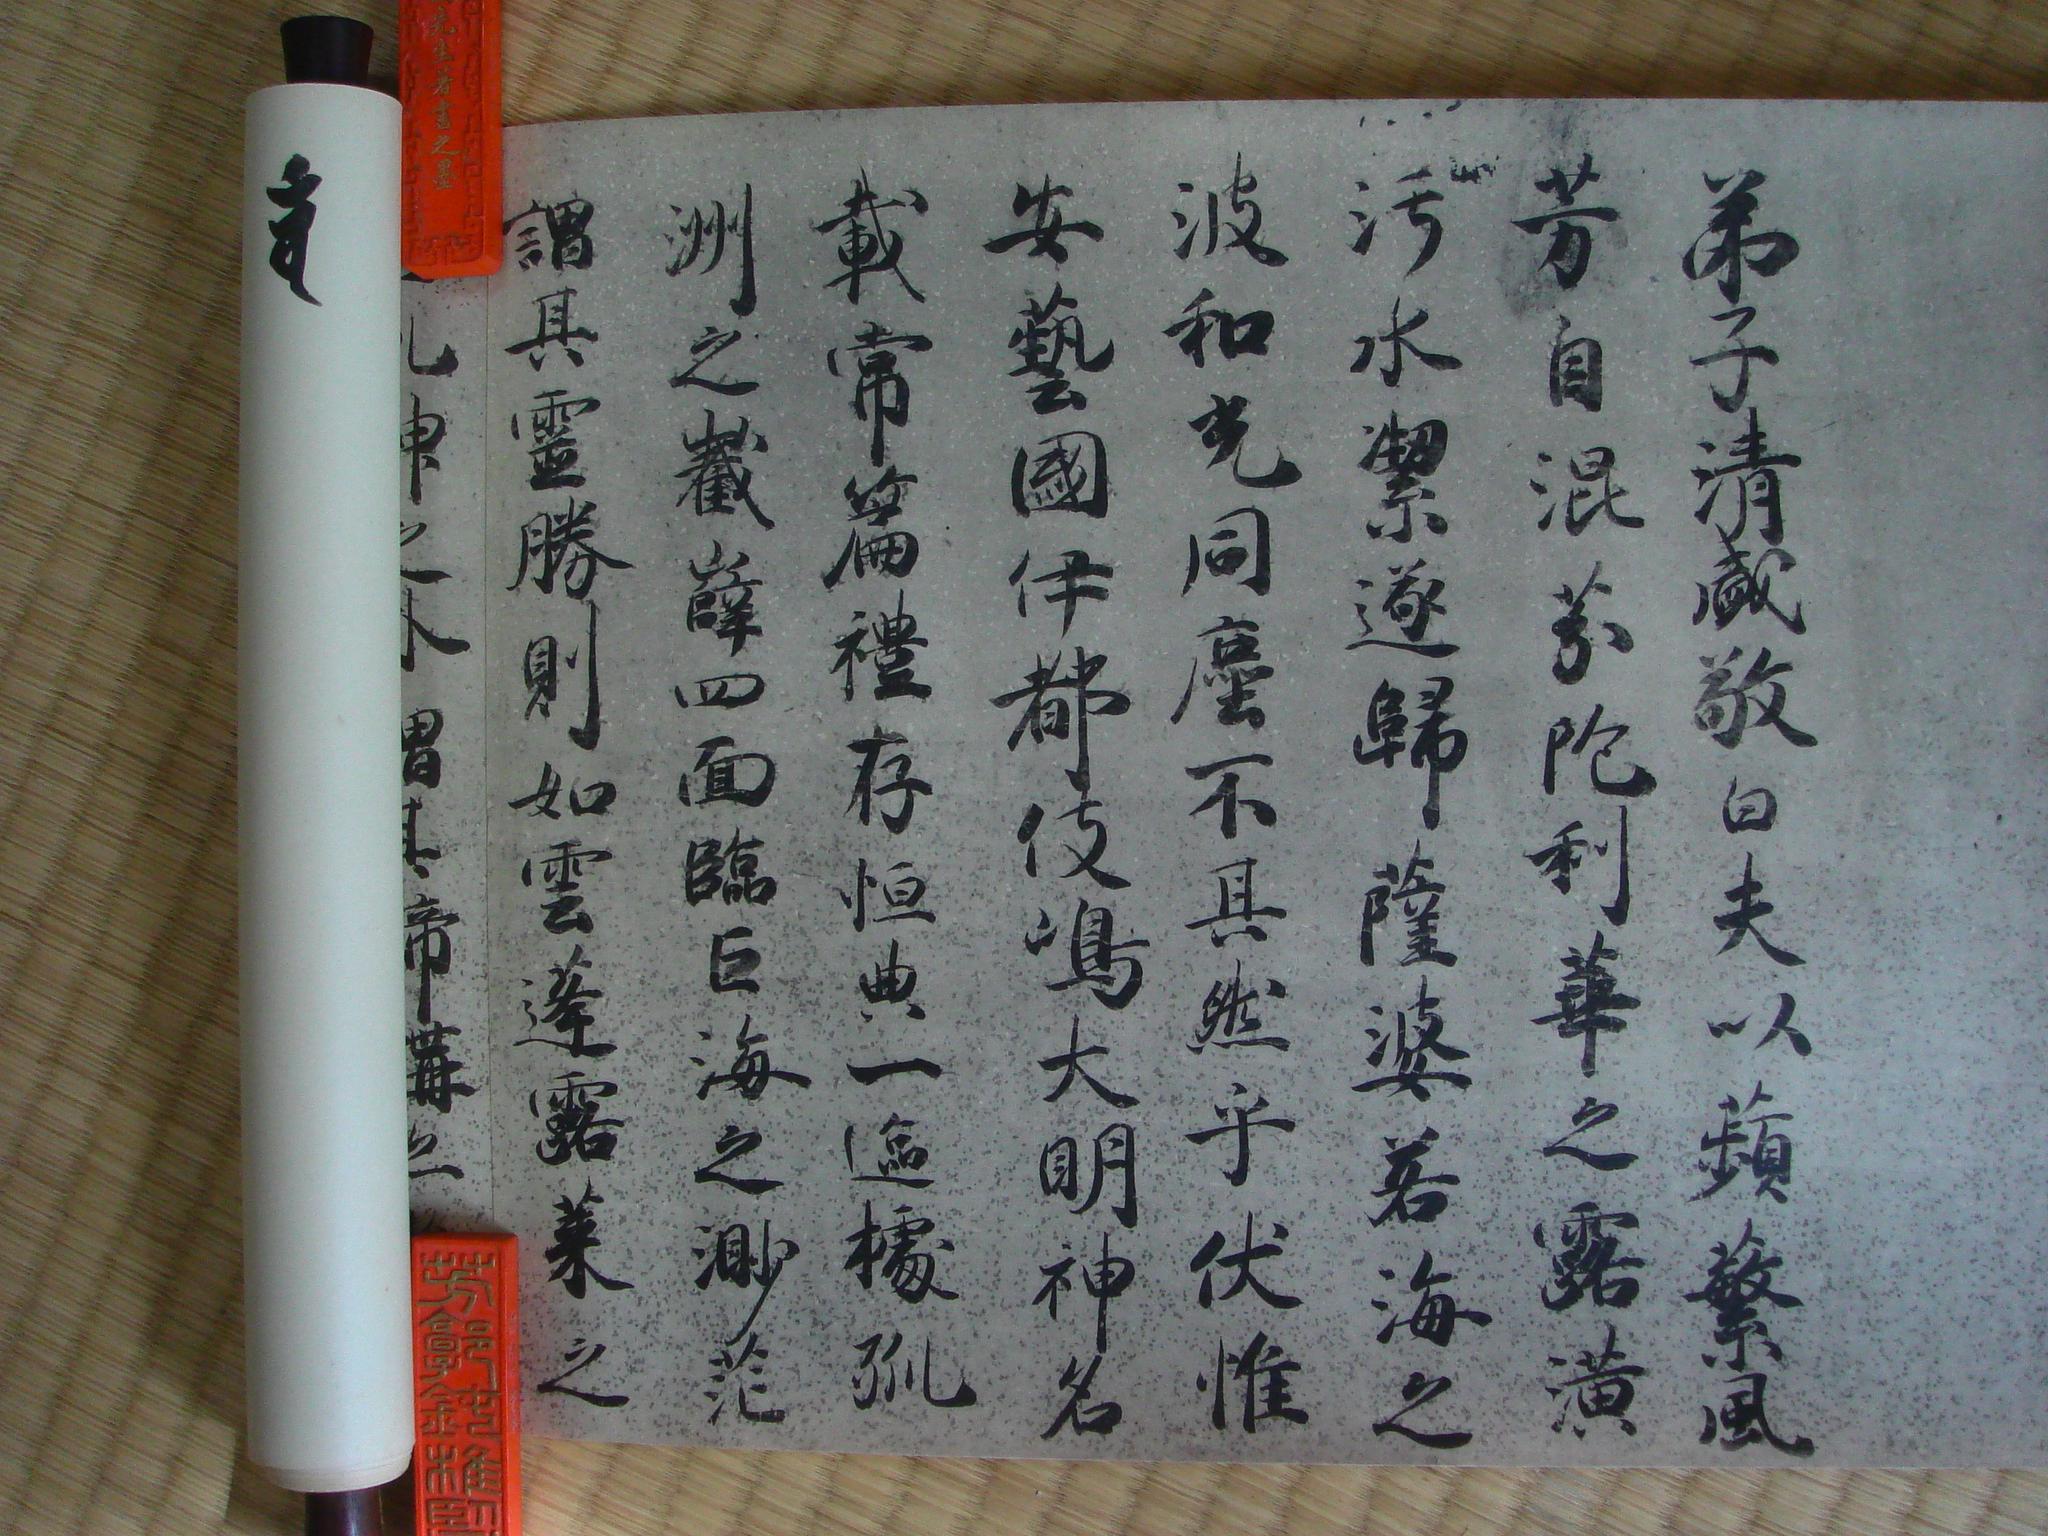 弟子清盛敬白夫以蘋蘩風
芳自混芬陀利華之露潢
汚水潔遂歸薩婆若海之
波和光同塵不其然乎伏惟
安藝國伊都伎嶋大明神名
載常篇禮存恒典一區據孤
洲之巀嶭四面臨巨海之渺茫
謂其靈勝則如雲蓬露萊之
神之 謂其 帝 之
先生著書之墨